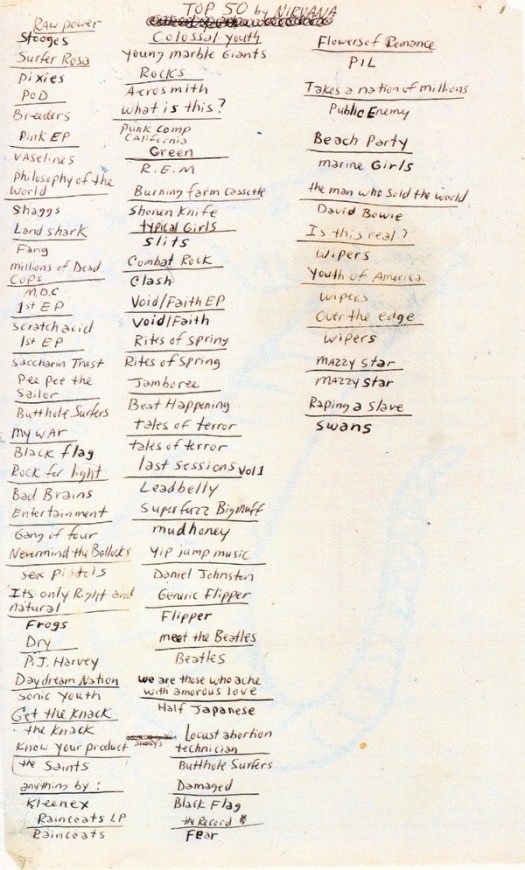 TOP 50 by NIRVANA
Raw power
Stooges
Surfer Rosa
Pixies
Pod
Breeders
Pink EP
Vaselines
Philosophy of the
World
Shaggs
Land shark
Fang
millions of Dead
Cops
M.D.C
1st EP
Scratch acid
1st EP
Saccharin Trust
Pee pee the
Sailor
Butthole Surfers
My war
Black flag
Rock for light
Bad Brains
Entertainment
Gang of four
Nevermind the Bollocks
sex pistols
Its only Right and
natural
Frogs
Dry
P.J. Harvey
Daydream Nation
Sonic youth
Get the Knack
the Knack
Know your product
the Saints
anything by :
Kleenex
Raincoats LP
Raincoats
Colossal youth
Young marble Giants
Rocks
Aerosmith
what is this?
Punk Comp
California
Green
R.E.M
Burning farm cassette
Shonen Knife
typical Girls
Slits
Combat Rock
Clash
Void/Faith EP
Void/Faith
Rites of Spring
Rites of Spring
Jamboree
Beat Happening
tales of terror
tales of terror
last sessions Vol 1
Leadbelly
Superfuzz Bigmuff
mudhoney
Yip jump music
Daniel Johnston
Generic Flipper
Flipper
meet the Beatles
Beatles
we are those who ache
with amorous love
Half Japanese
Locust abortion
technician
Butthole Surfers
Damaged
Black Flag
the Record
Fear
Flowers of Romance
PIL
Takes a nation of millions
Public Enemy
Beach Party
marine Girls
the man who sold the world
David Bowie
Is this real?
Wipers
Youth of America
Wipers
Over the edge
Wipers
mazzy Star
mazzy Star
Raping a Slave
Swans